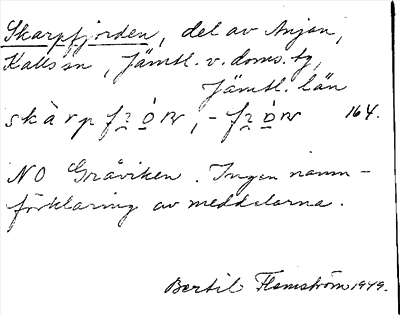 Skarpfjorden, del av Anjan,
Kallsjön, Jämtl. v. doms. tg,
Jämtl. län
skàrp 164.
NO Gråviken. Ingen namn-
förklaring av meddelarna.
Bertil Flemström 1949.